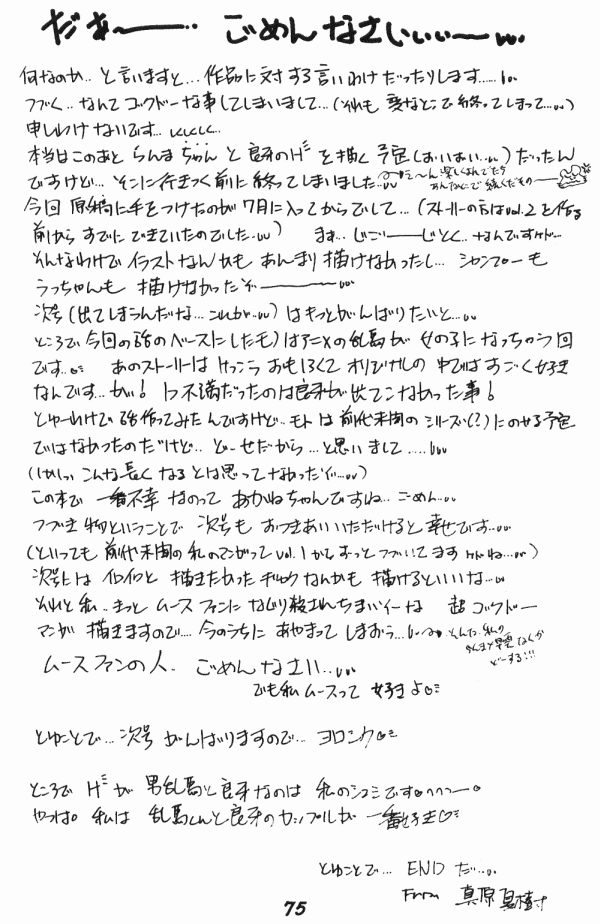 だぁ〜――‥ ごめんなさいぃぃぃ―
何なのか‥と言いますと…作品に対する言いわけだったりします……
つづく‥なんてゴクドーな事してしまいまして…(それも 変なとこで終ってしまって…)
申しわけないです…
本当はこのあと らんまちゃんと良牙のHを描く予定(おいおい…)だったん
ですけど… そこに行きつく前に終ってしまいました
今回 原稿に手をつけたのが7月に入ってからでして…(ストーリーの方はvol.2を作る
前から すでにできていたのでした…) まぁ… じごー――じとく‥なんですけど…
そんなわけで イラストなんかも あんまり描けなかったし… シャンプーも
うっちゃんも 描けなかったぞ―――
次号(出てしまうんだな…これが…)はもっとがんばりたいと…
ところで今回の話のベースにしたモノはアニメの乱馬が女の子になっちゃう回
です… あのストーリーは けっこうおもしろくて オリジナルの中ではすごく好き
なんです…が! 1つ不満だったのは良牙が出てこなかった事!
とゆーわけで 話作ってみたんですけど‥モトは前代未聞のシリーズ(?)にのせる予定
ではなかったのだけど‥ど―せだから…と思いまして……
(しかしっ こんな長くなるとは思ってなかったぞ…)
この本で 一番不幸なのって あかねちゃんですね‥ごめん…
つづき物ということで 次号も おつきあいいただけると幸せです…
(といっても前代未聞の私のマンガって vol.1からずっとつづいてますけどね…)
次号には イロイロと 描きたかったギャグなんかも描けるといいな…
それと私‥きっと ムースファンに なぐり殺されちまいそーな 超ゴクドー
マンガ 描きますので… 今のうちに あやまって しまおう…
ムースファンの人‥ ごめんなさい…
でも私 ムースって 好きよ♡
とゆことで… 次号 がんばりますので… ヨロシク♡
ところで Hが 男乱馬と良牙なのは 私のシュミです♡
やっぱ 私は 乱馬くんと良牙のカップルが 一番好き♡
とゆことで… END だ…
From 真原
75